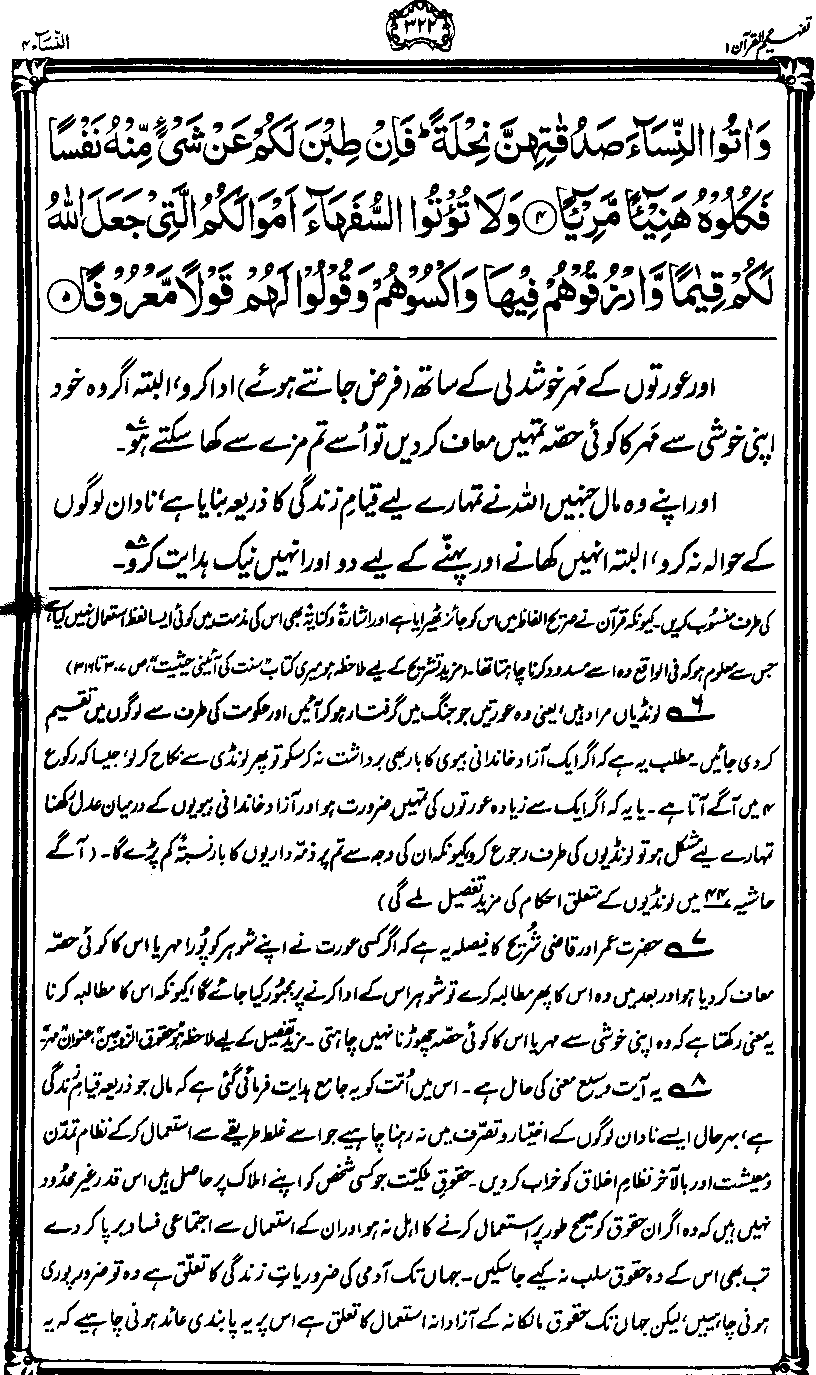 تفہیم القرآن ۱
۳۲۲
النسآء ۴
وَاٰتُوا النِّسَآءَ صَدُقٰتِهِنَّ نِحْلَةً ؕ فَاِنْ طِبْنَ لَكُمْ عَنْ شَىْءٍ مِّنْهُ نَفْسًا
فَكُلُوْهُ هَنِیْٓئًا مَّرِیْٓئًا ﴿۴﴾ وَلَا تُؤْتُوا السُّفَهَآءَ اَمْوَالَكُمُ الَّتِىْ جَعَلَ اللّٰهُ
لَكُمْ قِیٰمًا وَّارْزُقُوْهُمْ فِیْهَا وَاكْسُوْهُمْ وَقُوْلُوْا لَهُمْ قَوْلًا مَّعْرُوْفًا ﴿۵﴾
اور عورتوں کے مَہر خوشدلی کے ساتھ (فرض جانتے ہوئے) ادا کرو، البتہ اگر وہ خود
اپنی خوشی سے مَہر کا کوئی حصّہ تمہیں معاف کر دیں تو اُسے تم مزے سے کھا سکتے ہو۷۔
اور اپنے وہ مال جنہیں اللہ نے تمہارے لیے قیامِ زندگی کا ذریعہ بنایا ہے، نادان لوگوں
کے حوالہ نہ کرو، البتہ انہیں کھانے اور پہننے کے لیے دو اور انہیں نیک ہدایت کرو۸۔
کی طرف منسُوب کریں۔ کیونکہ قرآن نے صریح الفاظ میں اس کو جائز ٹھیرایا ہے اور اشارۃً و کنایۃً بھی اس کی مذمت میں کوئی ایسا لفظ استعمال نہیں کیا ہے
جس سے معلوم ہو کہ فی الواقع وہ اسے مسدود کرنا چاہتا تھا۔ (مزید تشریح کے لیے ملاحظہ ہو میری کتاب ”سنت کی آئینی حیثیت“، ص ۳۰۷ تا ۳۱۶)
۶؎ لونڈیاں مراد ہیں، یعنی وہ عورتیں جو جنگ میں گرفتار ہو کر آئیں اور حکومت کی طرف سے لوگوں میں تقسیم
کر دی جائیں۔ مطلب یہ ہے کہ اگر ایک آزاد خاندانی بیوی کا بار بھی برداشت نہ کر سکو تو پھر لونڈی سے نکاح کر لو، جیسا کہ رکوع
۴ میں آگے آتا ہے۔ یا یہ کہ اگر ایک سے زیادہ عورتوں کی تمہیں ضرورت ہو اور آزاد خاندانی بیویوں کے درمیان عدل رکھنا
تمہارے لیے مشکل ہو تو لونڈیوں کی طرف رجوع کرو کیونکہ ان کی وجہ سے تم پر ذمّہ داریوں کا بار نسبتہً کم پڑے گا۔ (آگے
حاشیہ ۴۴ میں لونڈیوں کے متعلق احکام کی مزید تفصیل ملے گی)
۷؎ حضرت عمر اور قاضی شُریح کا فیصلہ یہ ہے کہ اگر کسی عورت نے اپنے شوہر کو پُورا مہر یا اس کا کوئی حصّہ
معاف کر دیا ہو اور بعد میں وہ اس کا پھر مطالبہ کرے تو شوہر اس کے ادا کرنے پر مجبُور کیا جائے گا، کیونکہ اس کا مطالبہ کرنا
یہ معنی رکھتا ہے کہ وہ اپنی خوشی سے مہر یا اس کا کوئی حصّہ چھوڑنا نہیں چاہتی۔ مزید تفصیل کے لیے ملاحظہ ہو ”حقوق الزوجین“، عنوان ”مہر“۔
۸؎ یہ آیت وسیع معنی کی حامل ہے۔ اس میں اُمّت کو یہ جامع ہدایت فرمائی گئی ہے کہ مال جو ذریعہ قیامِ زندگی
ہے، بہر حال ایسے نادان لوگوں کے اختیار و تصرّف میں نہ رہنا چاہیے جو اسے غلط طریقے سے استعمال کر کے نظامِ تمدّن
و معیشت اور بالآخر نظامِ اخلاق کو خراب کر دیں۔ حقوقِ ملکیّت جو کسی شخص کو اپنے املاک پر حاصل ہیں اس قدر غیر محدُود
نہیں ہیں کہ وہ اگر ان حقوق کو صحیح طور پر استعمال کرنے کا اہل نہ ہو اور ان کے استعمال سے اجتماعی فساد برپا کر دے
تب بھی اس کے وہ حقوق سلب نہ کیے جا سکیں۔ جہاں تک آدمی کی ضروریاتِ زندگی کا تعلّق ہے وہ تو ضرور پوری
ہونی چاہییں، لیکن جہاں تک حقوقِ مالکانہ کے آزادانہ استعمال کا تعلق ہے اس پر یہ پابندی عائد ہونی چاہیے کہ یہ